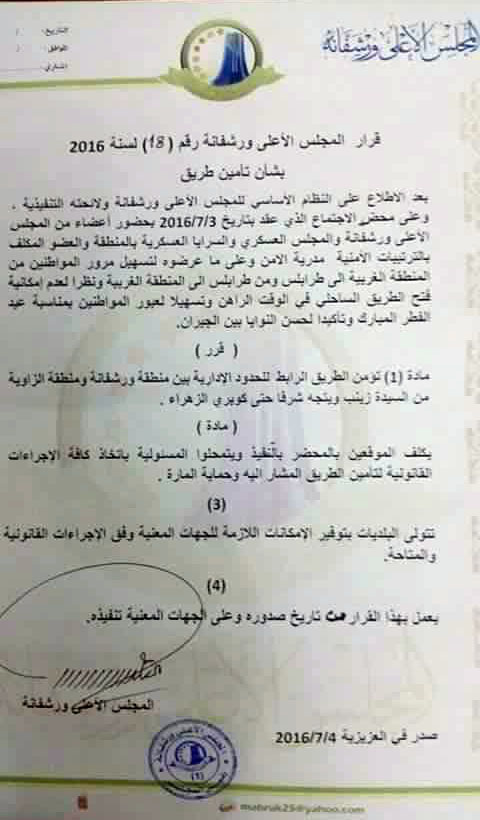 المجلس الأعلى ورشفانة
التاريخ: /
الموافق: /
إشاري:
قرار المجلس الأعلى ورشفانة رقم (18) لسنة 2016
بشأن تأمين طريق
بعد الأطلاع على النظام الأساسي للمجلس الأعلى ورشفانة ولائحته التنفيذية ،
وعلى محضر الاجتماع الذي عقد بتاريخ 2016/7/3 بحضور أعضاء من المجلس
الأعلى ورشفانة والمجلس العسكري والسرايا العسكرية بالمنطقة والعضو المكلف
بالترتيبات الأمنية مدرية الامن وعلى ما عرضوه لتسهيل مرور المواطنين من
المنطقة الغربية الى طرابلس ومن طرابلس الى المنطقة الغربية ونظرا لعدم إمكانية
فتح الطريق الساحلي في الوقت الراهن وتسهيلا لعبور المواطنين بمناسبة عيد
الفطر المبارك وتأكيدا لحسن النوايا بين الجيران.
( قرر )
مادة (1) تؤمن الطريق الرابط للحدود الإدارية بين منطقة ورشفانة ومنطقة الزاوية
من السيدة زينب ويتجه شرقا حتى كوبري الزهراء .
( مادة )
يكلف الموقعين بالمحضر بالتنفيذ ويتمحلوا المسئولية باتخاذ كافة الإجراءات
القانونية لتأمين الطريق المشار اليه وحماية المارة .
(3)
تتولى البلديات بتوفير الإمكانات اللازمة للجهات المعنية وفق الإجراءات القانونية
والمتاحة.
(4)
يعمل بهذا القرار من تاريخ صدوره وعلى الجهات المعنية تنفيذه.
المجلس الأعلى ورشفانة
صدر في العزيزية 2016/7/4
المجلس الأعلى ورشفانة
(1)
mabruk25@yahoo.com